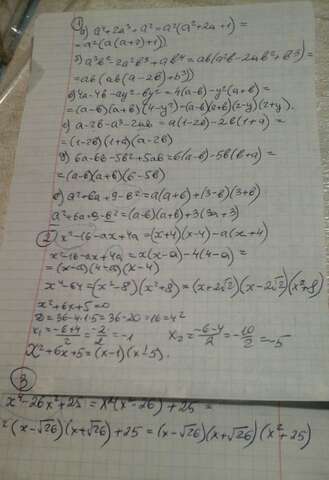 1
а) a⁴+2a³+a²=a²(a²+2a+1)=
=a²(a(a+2)+1))
б) a³b²-2a²b³+ab⁴=ab(a²b-2ab²+b³)=
=ab(ab(a-2b)+b3))
в) 4a-4b-ay²-by²=4(a-b)-y²(a+b)=
=(a-b)(a+b)(4-y²)=(a-b)(a+b)(2-y)(2+y).
г) a-2b-a³-2ab=a(1-2b)-2b(1+a)=
=(1-2b)(1+a)(a-2b)
д) 6a-6b-5b²+5ab=6(a-b)-5b(b+a)=
=(a-b)(a+b)(6-5b)
е) a²+6a+9-b²=a(a+6)+(3-b)(3+b)
a²+6a+9-b²=(a-b)(a+b)+3(3a+3)
2 x²-16-ax+4a=(x+4)(x-4)-a(x+4)
x²-16-ax+4a=x(x-a)-4(4-a)=
=(x-a)(4-a)(x-4)
x⁴-64=(x²-8)(x²+8)=(x+2√2)(x-2√2)(x²+8)
x²+6x+5=0
D=36-4·1·5=36-20=16=4²
x₁=-6+4/2=-2/2=-1 x₂=-6-4/2=-10/2=-5
x²+6x+5=(x-1)(x-5).
3
x⁴-26x²+25=x²(x²-26)+25=
(x-√26)(x+√26)+25=(x-√26)(x+√26)(x²+25)